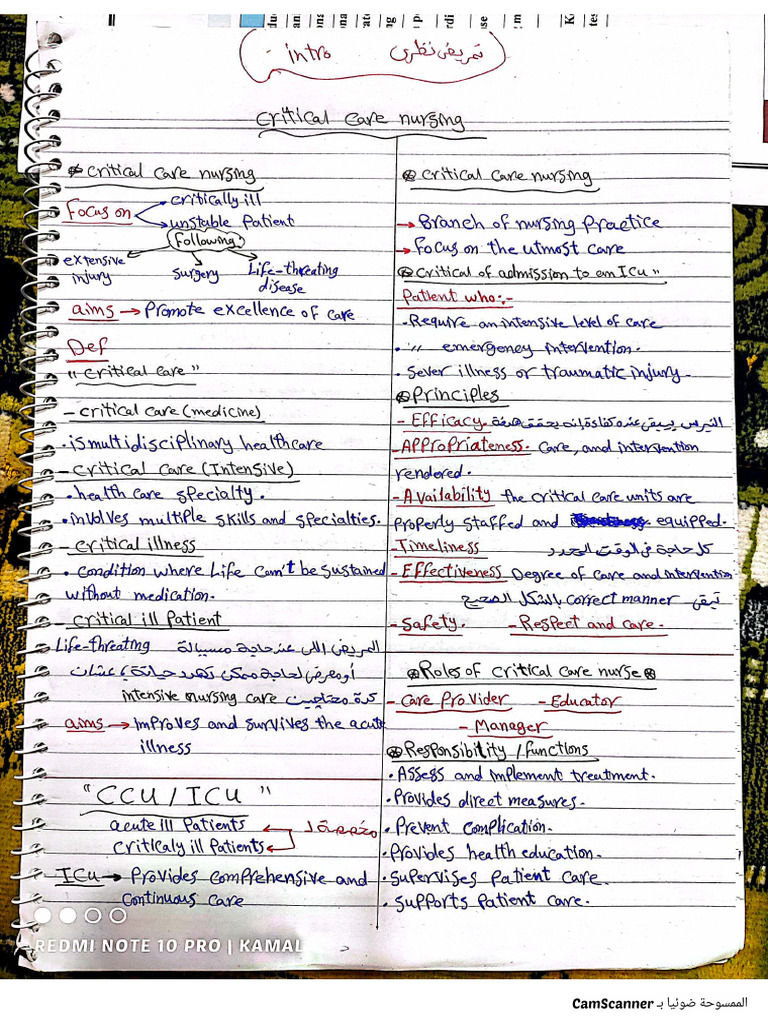 intro تمريض نظري
Critical care nursing
critical care nursing
Focus on
critically ill
unstable Patient
Following:
extensive injury
Surgery
Life-threating disease
aims → Promote excellence of care
Def
"critical care"
- critical care (medicine)
• is multidisciplinary healthcare
- critical care (Intensive)
• health care specialty.
• involves multiple skills and specialties.
- critical illness
• condition where Life can't be sustained
without medication.
- critical ill Patient
Life-threating المريض اللي عنده حاجة مسببالة
أو معرض لحاجة ممكن تهدد حياتة، عشان
كدة محتاجين intensive nursing care
aims → improves and survives the acute
illness
"CCU / ICU"
acute ill Patients
criticaly ill Patients
مخصصة لـ
ICU → Provides comprehensive and
continuous care
critical care nursing
→ Branch of nursing Practice
→ Focus on the utmost care
critical of admission to an ICU"
Patient who:-
• Require an intensive level of care
• " emergency intervention.
• Sever illness or traumatic injury.
Principles
- Efficacy.
- Appropriateness. Care, and intervention
rendered.
- Availability the critical care units are
Properly staffed and equipped.
- Timeliness كل حاجة في الوقت المحدد
- Effectiveness Degree of care and intervention
تبقى correct manner بالشكل الصحيح
- Safety. - Respect and care.
Roles of critical care nurse
- Care Provider - Educator
- Manager
Responsibility / functions
• Assess and implement treatment.
• Provides direct measures.
• Prevent complication.
• Provides health education.
• supervises Patient care.
• supports Patient care.
REDMI NOTE 10 PRO | KAMAL
الممسوحة ضوئيا بـ CamScanner